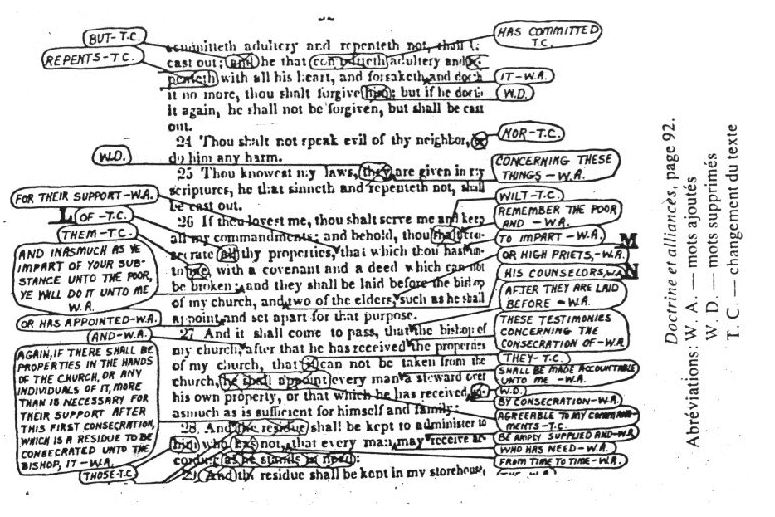 BUT-T.C.
REPENTS-T.C.
W.D.
FOR THEIR SUPPORT-W.A.
L
OF-T.C.
THEM-T.C.
AND INASMUCH AS YE
IMPART OF YOUR SUB-
STANCE UNTO THE POOR,
YE WILL DO IT UNTO ME
W.A.
OR HAS APPOINTED-W.A.
AND-W.A.
AGAIN, IF THERE SHALL BE
PROPERTIES IN THE HANDS
OF THE CHURCH, OR ANY
INDIVIDUALS OF IT, MORE
THAN IS NECESSARY FOR
THEIR SUPPORT AFTER
THIS FIRST CONSECRATION,
WHICH IS A RESIDUE TO BE
CONSECRATED UNTO THE
BISHOP, IT-W.A.
THOSE-T.C.
adultery and repenteth not, shall
cast out; and he that committeth adultery and
penteth with all his heart, and forsaketh and doeth
it no more, thou shalt forgive him; but if he doeth
it again, he shall not be forgiven, but shall be cast
out.
24 Thou shalt not speak evil of thy neighbor,
do him any harm.
25 Thou knowest my laws, they are given in my
scriptures, he that sinneth and repenteth not, shall
be cast out.
26 If thou lovest me, thou shalt serve me and keep
all my commandments; and behold, thou shalt
secrate all thy properties, that which thou hast
to me, with a covenant and a deed which can not
be broken; and they shall be laid before the bishop
of my church, and two of the elders, such as he shall
appoint and set apart for that purpose.
27 And it shall come to pass, that the bishop of
my church, after that he has received the properties
of my church, that can not be taken from the
church, he shall appoint every man a steward over
his own property, or that which he has received,
asmuch as is sufficient for himself and family:
28 And the residue shall be kept to administer to
him who has not, that every man may receive ac-
cording as he stands in need:
29 And the residue shall be kept in my storehouse,
HAS COMMITTED
T.C.
IT-W.A.
W.D.
NOR-T.C.
CONCERNING THESE
THINGS-W.A.
WILT-T.C.
REMEMBER THE POOR
AND-W.A.
TO IMPART-W.A.
M
OR HIGH PRIETS,-W.A.
HIS COUNSELORS,W.A.
N
AFTER THEY ARE LAID
BEFORE-W.A.
THESE TESTIMONIES
CONCERNING THE
CONSECRATION OF-W.A.
THEY-T.C.
SHALL BE MADE ACCOUNTABLE
UNTO ME-W.A.
W.D.
BY CONSECRATION-W.A.
AGREEABLE TO MY COMMAND-
MENTS-T.C.
BE AMPLY SUPPLIED AND-W.A.
WHO HAS NEED-W.A.
FROM TIME TO TIME-W.A.
Doctrine et alliances, page 92.
Abréviations: W. A. — mots ajoutés
W. D. — mots supprimés
T. C. — changement du texte